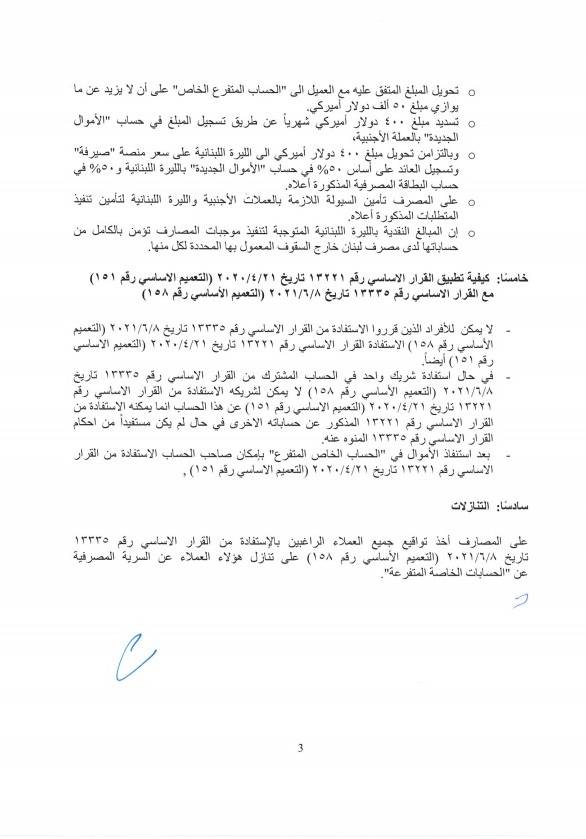 o تحويل المبلغ المتفق عليه مع العميل الى "الحساب المتفرع الخاص" على أن لا يزيد عن ما
يوازي مبلغ ٥٠ ألف دولار أميركي.
o تسديد مبلغ ٤٠٠ دولار أميركي شهرياً عن طريق تسجيل المبلغ في حساب "الأموال
الجديدة" بالعملة الأجنبية،
o وبالتزامن تحويل مبلغ ٤٠٠ دولار أميركي الى الليرة اللبنانية على سعر منصة "صيرفة"
وتسجيل العائد على أساس ٥٠% في حساب "الأموال الجديدة" بالليرة اللبنانية و٥٠% في
حساب البطاقة المصرفية المذكورة أعلاه.
o على المصرف تأمين السيولة اللازمة بالعملات الأجنبية والليرة اللبنانية لتأمين تنفيذ
المتطلبات المذكورة أعلاه.
o إن المبالغ النقدية بالليرة اللبنانية المتوجبة لتنفيذ موجبات المصارف تؤمن بالكامل من
حساباتها لدى مصرف لبنان خارج السقوف المعمول بها المحددة لكل منها.
خامسًا: كيفية تطبيق القرار الاساسي رقم ١٣٢٢١ تاريخ ٢٠٢٠/٤/٢١ (التعميم الاساسي رقم ١٥١)
مع القرار الاساسي رقم ١٣٣٣٥ تاريخ ٢٠٢١/٦/٨ (التعميم الأساسي رقم ١٥٨)
- لا يمكن للأفراد الذين قرروا الاستفادة من القرار الاساسي رقم ١٣٣٣٥ تاريخ ٢٠٢١/٦/٨ (التعميم
الأساسي رقم ١٥٨) الاستفادة القرار الاساسي رقم ١٣٢٢١ تاريخ ٢٠٢٠/٤/٢١ (التعميم الاساسي
رقم ١٥١) أيضاً.
- في حال استفادة شريك واحد في الحساب المشترك من القرار الاساسي رقم ١٣٣٣٥ تاريخ
٢٠٢١/٦/٨ (التعميم الأساسي رقم ١٥٨) لا يمكن لشريكه الاستفادة من القرار الاساسي رقم
١٣٢٢١ تاريخ ٢٠٢٠/٤/٢١ (التعميم الاساسي رقم ١٥١) عن هذا الحساب انما يمكنه الاستفادة من
القرار الاساسي رقم ١٣٢٢١ المذكور عن حساباته الاخرى في حال لم يكن مستفيداً من احكام
القرار الاساسي رقم ١٣٣٣٥ المنوه عنه.
- بعد استنفاذ الأموال في "الحساب الخاص المتفرع" بإمكان صاحب الحساب الاستفادة من القرار
الاساسي رقم ١٣٢٢١ تاريخ ٢٠٢٠/٤/٢١ (التعميم الاساسي رقم ١٥١) ,
سادسًا: التنازلات
على المصارف أخذ تواقيع جميع العملاء الراغبين بالإستفادة من القرار الاساسي رقم ١٣٣٣٥
تاريخ ٢٠٢١/٦/٨ (التعميم الأساسي رقم ١٥٨) على تنازل هؤلاء العملاء عن السرية المصرفية
عن "الحسابات الخاصة المتفرعة".
3